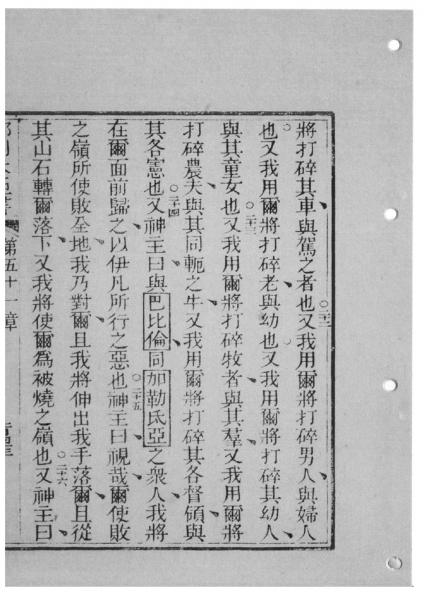 將打碎其車與駕之者也○二二又我用爾將打碎男人與婦人
也又我用爾將打碎老與幼也又我用爾將打碎其幼人
與其童女也○二三又我用爾將打碎牧者與其羣又我用爾將
打碎農夫與其同軛之牛又我用爾將打碎其各督領與
其各憲也○二四又神主曰與巴比倫同加勒氐亞之衆人我將
在爾面前歸之以伊凡所行之惡也○二十五神主曰視哉爾使敗
之嶺所使敗全地我乃對爾且我將伸出我手落爾且從
其山石轉爾落下又我將使爾為被燒之嶺也○二十六又神主曰
第五十一章